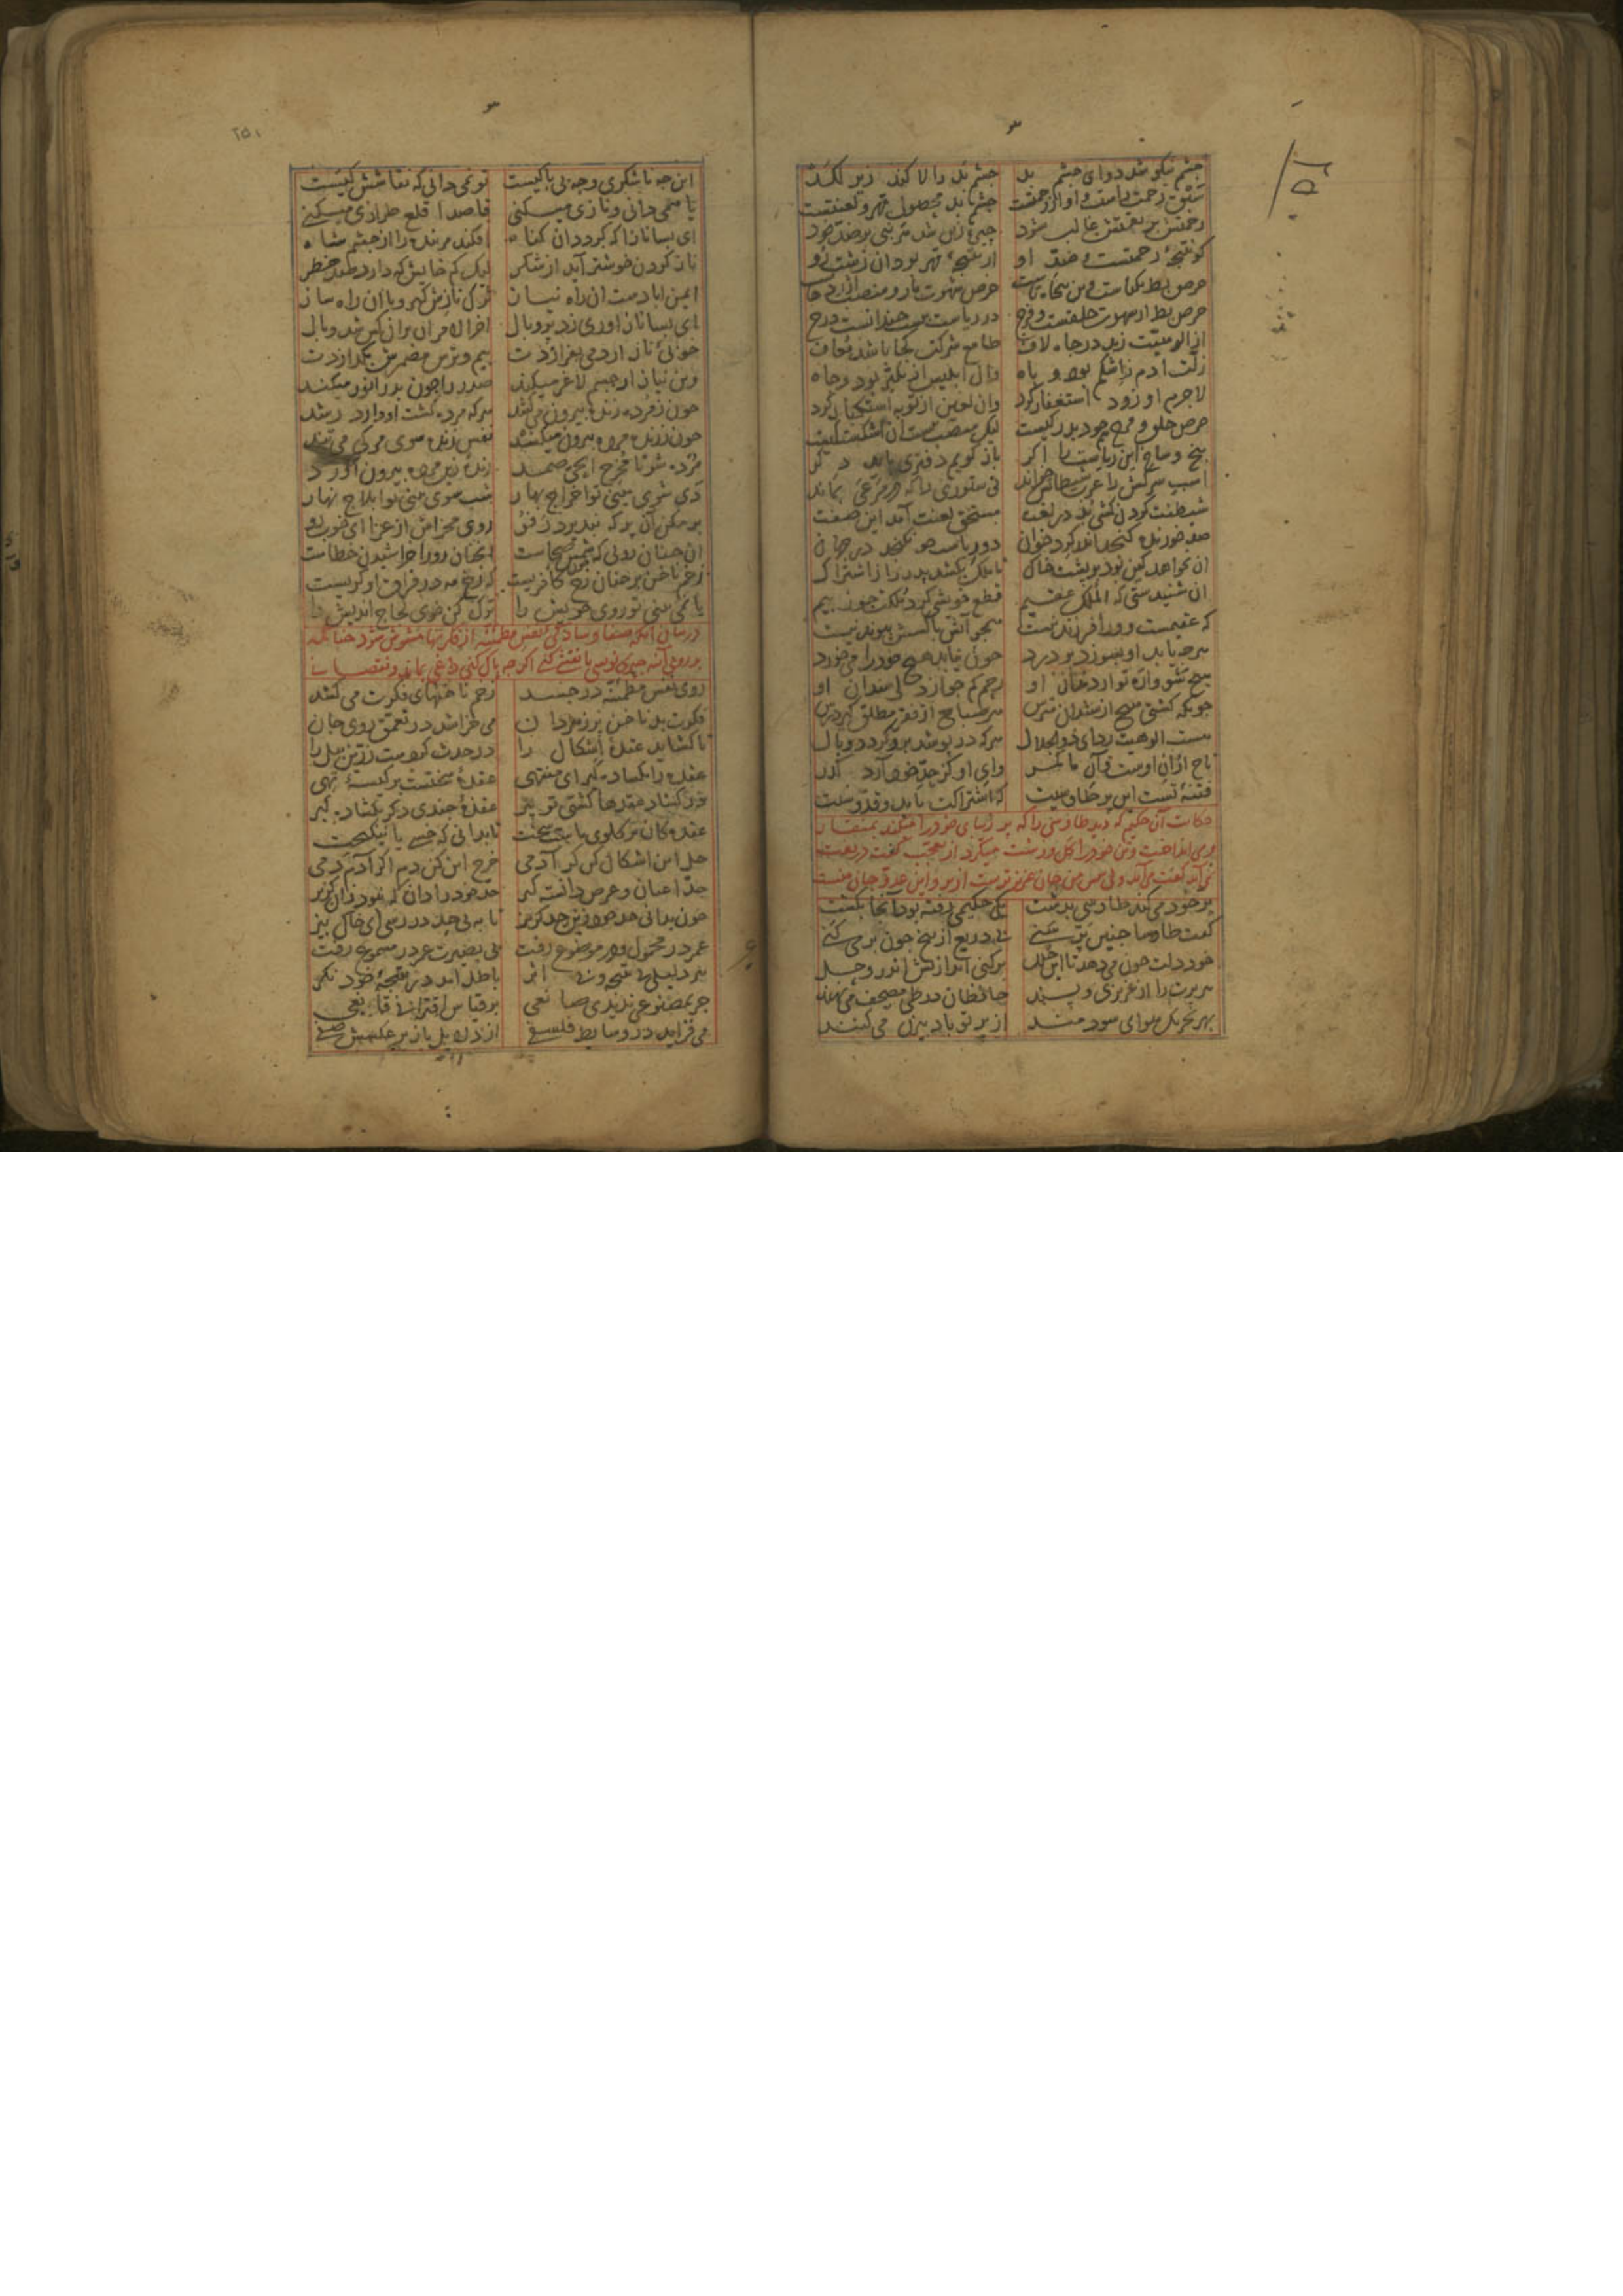 چشم نیکو شد دوای چشم بد چشم بد را لا کند زیر لکد
سبق رحمت راست و او از رحمتست چشم بد محصول قهر و لعنتست
رحمتش بر نقمتش غالب شود چیره زین شد هر نبی بر ضد خود
کو نتیجه رحمتست و ضد او از نتیجه قهر بود آن زشت رو
حرص بط یکتاست و این پنجاه تاست حرص شهوت مار و منصب اژدهاست
حرص بط از شهوت حلقست و فرج در ریاست بیست چندانست درج
از الوهیت زند در جاه لاف طامع شرکت کجا باشد معاف
زلت ادم زاشکم بود و باه وان ابلیس از تکبر بود و جاه
لاجرم او زود استغفار کرد وان لعین از توبه استکبار کرد
حرص حلق و فرج هم خود بدرکیست لیک منصب نیست آن اشکستکیست
بیخ و شاخ این ریاست را اکر باز کویم دفتری باید دکر
اسب سرکش را عرب شیطانش خواند نی ستوری را که در مرعی بماند
شیطنت کردن کشی بد در لغت مستحق لعنت آمد این صفت
صد خورنده کنجد اندر کرد خوان دو ریاست جو نکنجد در جهان
ان نخواهد کین بود بر پشت خاک تا ملک بکشد پدر را ز اشتراک
ان شنیدستی که الملک عقیم قطع خویشی کرد ملکت جو ز بیم
که عقیمست و ورا فرزند نیست همجو آتش با کسش پیوند نیست
هرجه یابد او بسوزد بر درد جون نیابد هیچ خود را می خورد
هیچ شو واره تو از دندان او رحم کم جو از دل سندان او
جونکه کشتی هیچ از سندان مترس هر صباح از فقر مطلق کیر درس
هست الوهیت ردای ذو الجلال هر که در پوشد برو کردد وبال
تاج ازان اوست و آن ما کمر وای او کز حد خود دارد کذر
فتنه تست این پر طاوسیت که اشتراکت باید و قدوسیت
حکایت آن حکیم که دید طاوسی را که پر زیبای خود را میکند بمنقار
و می انداخت و تن خود را کل و زشت میکرد از تعجب کفت دریغت
نمی آید کفت می آید ولی پیش من جان عزیزترست از پر و این عدو جان منست
پر خود می کند طاوسی بدشت یک حکیمی رفته بود آنجا بکشت
کفت طاوسا جنین پر سنی بی دریغ از بیخ جون برمی کنی
خود دلت جون می دهد تا این حلل برکنی اندازیش اندر وحل
هر پرت را از عزیزی و پسند حافظان در طی مصحف می نهند
بهر تحریک هوای سودمند از پر تو بادبیزن می کنند
این جه ناشکری و جه بی باکیست تو نمی دانی که نقاشش کیست
یا همی دانی و نازی میکنی قاصدا قلع طرازی میکنی
ای بسا نازا که کردد ان کناه افکند مر بنده را از جشم شاه
ناز کردن خوشتر آید از شکر لیک کم خایش که دارد صد خطر
ایمن ابادست ان راه نیاز ترک نازش کیر و با ان راه ساز
ای بسا ناز اوری زد پر و بال اخر الامر ان بران کس شد وبال
خوشی ناز ار دمی بفرازدت بیم و ترس مضمرش بکدازدت
وین نیاز ار جه جسم لاغر میکند صدر را جون بدر انور میکند
جون ز مرده زنده بیرون می کشد هر که مرده کشت او دارد رشد
جون ز زنده مرده بیرون میکشد نفس زنده سوی مرکی می تند
مرده شو تا مخرج الحی الصمد زنده زین مرده بیرون آورد
دی شوی بینی تو اخراج بهار شب شوی بینی تو ایلاج نهار
بر مکن آن پر که نپذیرد رفو روی مخراش از عزا ای خوب رو
ان جنان رویی که شمس ضحاست انجنان رو را خراشیدن خطاست
زخم ناخن بر جنان رخ کافریست که رخ مه در فراق او کریست
یا نمی بینی تو روی خویش را ترک کن خوی لجاج اندیش را
در بیان آنکه صفا و سادکی نفس مطمئنه از فکرتها مشوش شود جنانکه
بر روی آینه جیزی نویسی یا نقش کنی اکرجه پاک کنی داغی بماند و نقصان
روی نفس مطمئنه در جسد زخم ناخنهای فکرت می کشد
فکرت بد ناخن پر زهر دان می خراشد در تعمق روی جان
تا کشاید عقده اشکال را در حدث کردست زرین بیل را
عقده را بکشاده کیر ای منتهی عقده سختست بر کیسه تهی
در کشاد عقدها کشتی تو پیر عقده جندی دکر بکشاده کیر
عقده کان بر کلوی ماست سخت تا بدانی که خسی یا نیکبخت
حل این اشکال کن کر آدمی خرج این کن دم اکر آدم دمی
حد اعیان و عرض دانسته کیر حد خود را دان که نبود زان کزیر
جون بدانی حد خود زین حد کریز تا به بی حد در رسی ای خاک بیز
عمر در محمول و در موضوع رفت بی بصیرت عمر در مسموع رفت
هر دلیلی بی نتیجه و بی اثر باطل آمد در نتیجه خود نکر
جز بمصنوعی ندیدی صانعی بر قیاس اقترانی قانعی
می فزاید در وسایط فلسفی از دلایل باز بر عکسش صفی